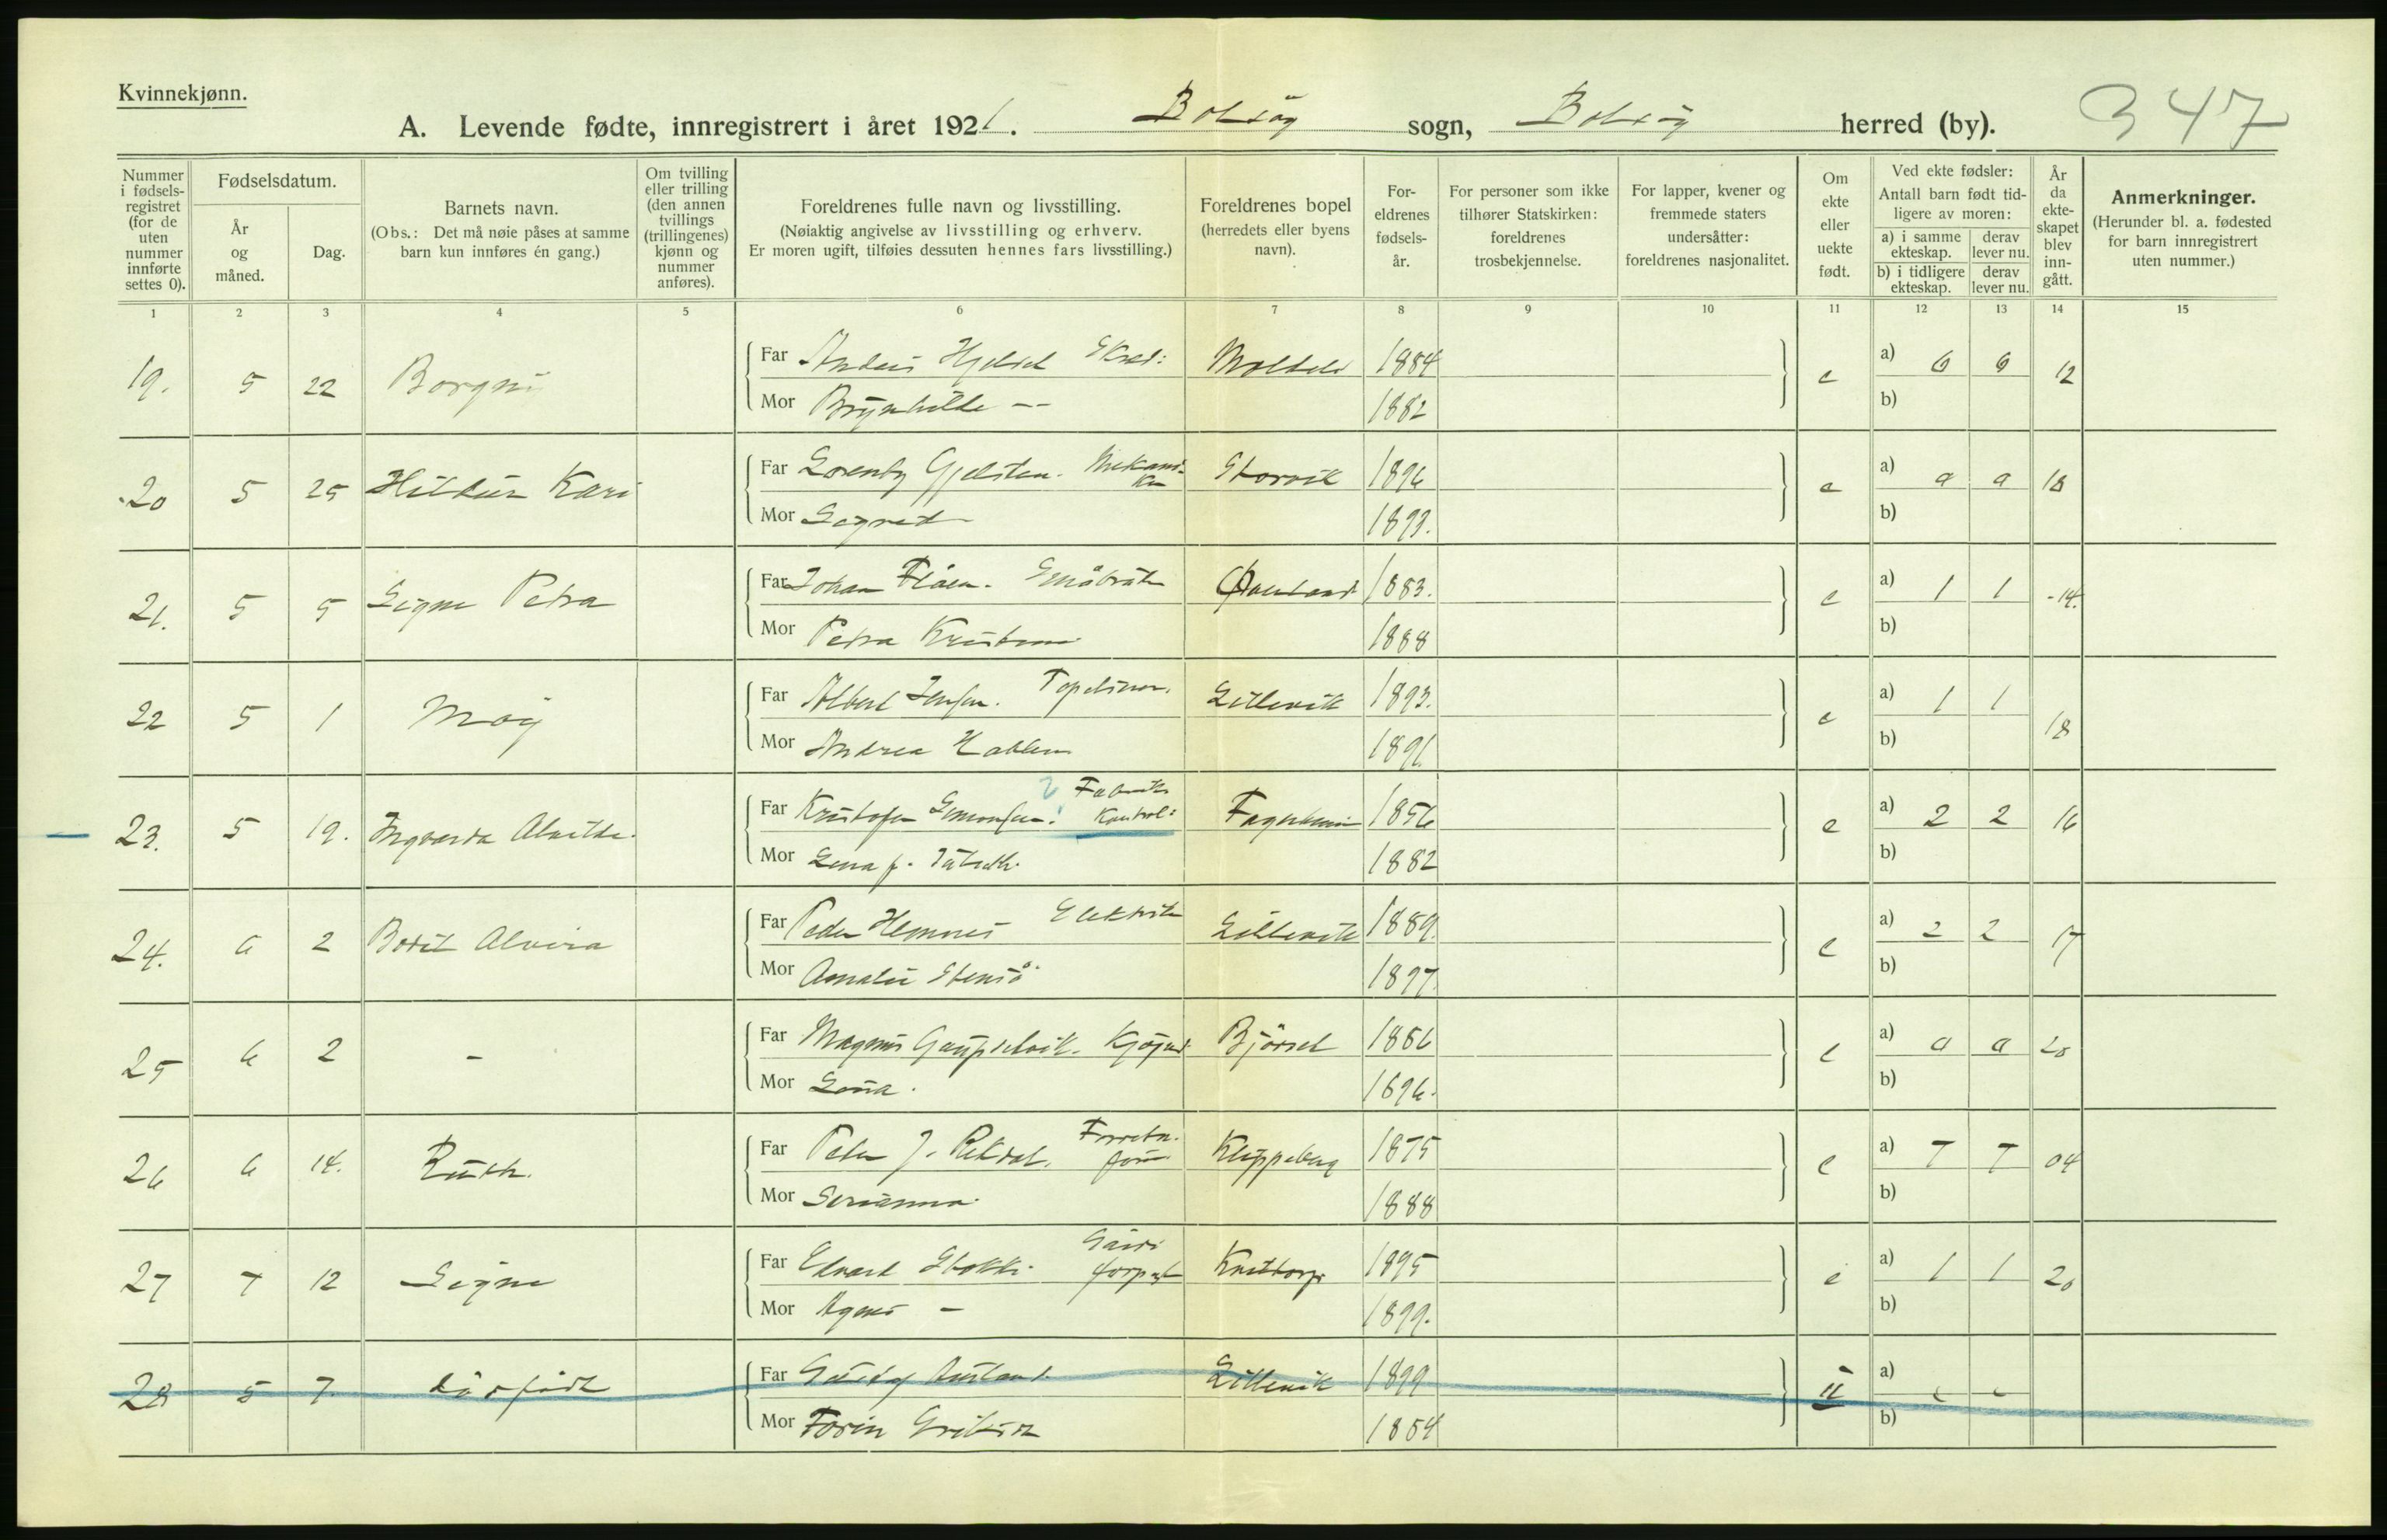 Kvinnekjønn.
A. Levende fødte, innregistrert i året 1921. Bolsöy sogn, Bolsöy herred (by). 347
Nummer i fødselsregistret (for de uten nummer innførte settes 0).
Fødselsdatum.
År og måned.
Dag.
Barnets navn.
(Obs.: Det må nøie påses at samme barn kun innføres én gang.)
Om tvilling eller trilling (den annen tvillings (trillingenes) kjønn og nummer anføres).
Foreldrenes fulle navn og livsstilling.
(Nøiaktig angivelse av livsstilling og erhverv.
Er moren ugift, tilføies dessuten hennes fars livsstilling.)
Foreldrenes bopel (herredets eller byens navn).
Foreldrenes fødselsår.
For personer som ikke tilhører Statskirken: foreldrenes trosbekjennelse.
For lapper, kvener og fremmede staters undersåtter: foreldrenes nasjonalitet.
Om ekte eller uekte født.
Ved ekte fødsler:
Antall barn født tidligere av moren:
a) i samme ekteskap. derav lever nu.
b) i tidligere ekteskap. derav lever nu.
År da ekteskapet blev inngått.
Anmerkninger.
(Herunder bl. a. fødested for barn innregistrert uten nummer.)
1 2 3 4 5 6 7 8 9 10 11 12 13 14 15
19. 5 22 Borgny Far Anders Hjelset 1884 e a) 6 6 12
Mor Brynhilde -- 1882 b)
20 5 25 Hildur Kari Far Lorentz Gjelsten. Storvik 1896 e a) 0 0 18
Mor 1899. b)
21. 5 5 Signe Petra Far Johan Flåen. 1883. e a) 1 1 -14.
Mor Petra 1888 b)
22 5 1 May Far Albert Jensen. Lillevik 1893. e a) 1 1 18
Mor Andrea 1891 b)
23. 5 19. Ingvarda Alvilde. Far Kristofer Simonsen. Fabrik Kontrol: 1856 e a) 2 2 16
Mor 1882 b)
24. 6 2 Bodil Alvira Far Peder Hemnes Elektrik Lillevik 1889. e a) 2 2 17
Mor Amalie 1897 b)
25 6 2 - Far Magnus Björset 1886 e a) 0 0 20
Mor 1896. b)
26 6 14. Ruth. Far Peter J. Rekdal. Forretn. Kleppeberg 1875 e a) 7 7 04
Mor Serianna. 1888 b)
27 7 12 Signe Far Edvard Stokke. 1895 e a) 1 1 20
Mor Agnes - 1899. b)
28 5 7. dødfödt Far Lillevik 1899 u a)
Mor 1884 b)